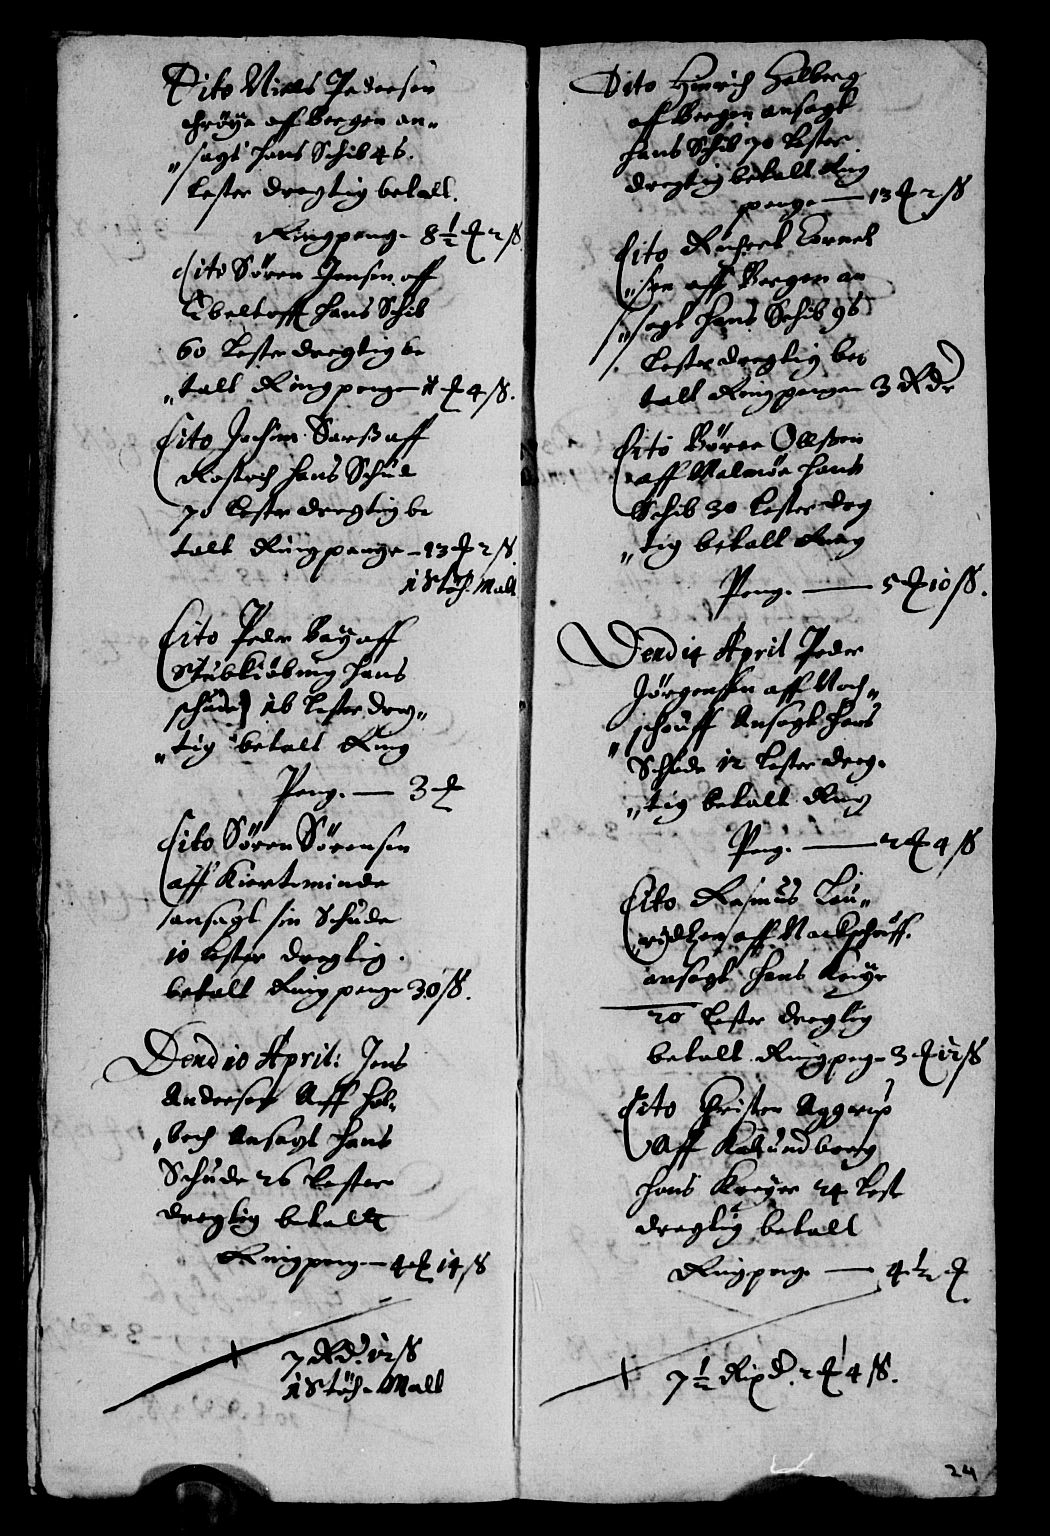 Dito Niels Pedersen
aff Bergen an„
„sagt hans Schib 46.
Lester dregtig betalt.
Ringpenge 8½ ₰ 2 ß
Dito Søren Jensen aff
Ebeltoff hans Schib
60 Lester dregtig be
„talt Ringpenge 11 ₰ 4 ß.
Dito Jochim Sarß aff
Rostoch hans Schüd
70 Lester dregtig be
talt Ringpenge – 13 ₰ 2 ß.
1 Støch. Malt
Dito Peder Bay aff
Stubkiøbing hans
schude 16 Lester dreg„
„tig betalt Ring
Peng. — 3 ₰
Dito Søren Sørensen
aff Kierteminde
ansagt sin Schude
10 Lester dregtig.
betalt Ringpenge 30 ß.
Dend 10 April: Jens
Andersen Aff Hol„
„bech Ansagt hans
Schude 26 Lester
dregtig betallt
Ringpeng — 4 ₰ 14 ß
7 Rd. 12 ß
1 Støch. Malt
Dito Hinrich Holberg
aff Bergen ansagt
hans Schib 70 Lester
dregtig betalt Ring
penge — 13 ₰ 2 ß
Dito Cornel
„sen aff Bergen an
„sagt hans Schib 96
Lester dregtig be
talt Ringpenge 3 Rdr
Dito Børre Ollsen
aff Malmøe hans
Schib 30 Lester dreg
„tig betalt Ring
Peng. — 5 ₰ 10 ß.
Dend 14 April Peder
Jørgensen aff Noch„
„schouff Ansagt hans
Schude 12 Lester dreg.
„tig betalt Ring
Peng. — 2 ₰ 4 ß
Dito Rasmus Lau„
ridtzen aff Nackschouff.
ansagt hans Kreyer
20 Lester dregtig
betalt Ringpenge 3 ₰ 12 ß
Dito Christen Aggerup
Aff Kalundborg
hans Kreyer 24 Lest
dregtig betalt
Ringpeng. — 4½ ₰
7½ Rixd. 2 ₰ 4 ß.
24